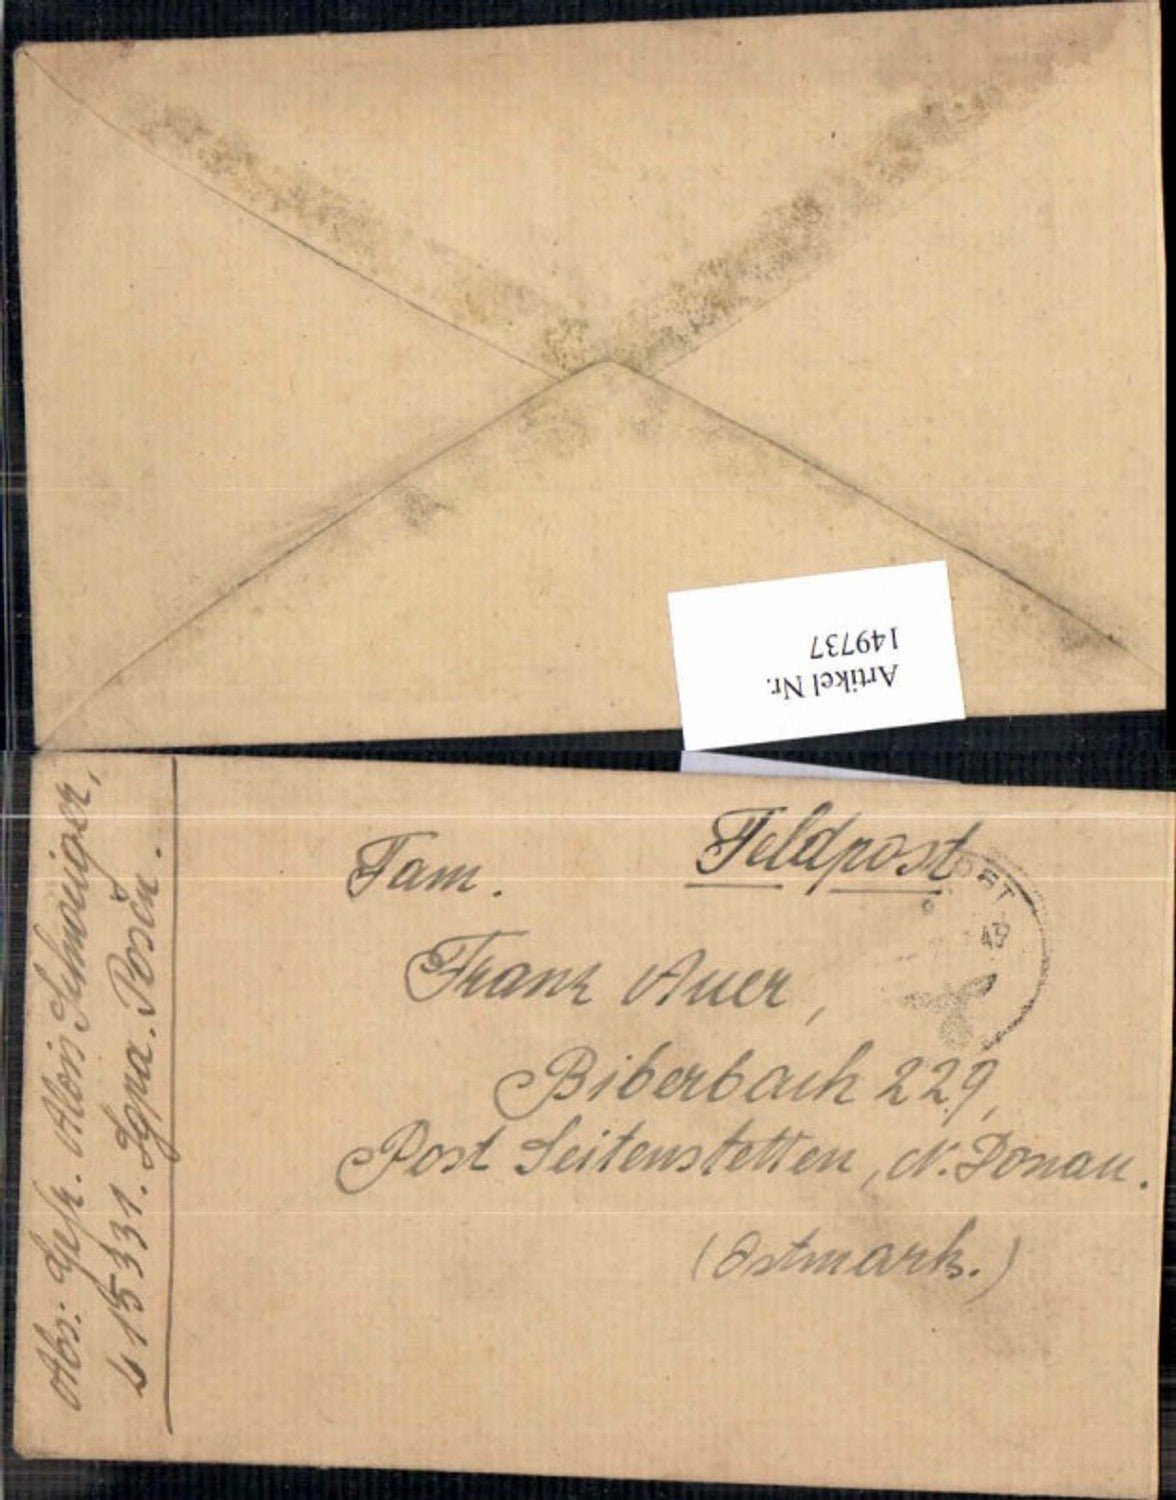 Artikel Nr.
149737
Feldpost
Fam.
Franz Auer,
Biberbach 229,
Post Seitenstetten, N. Donau.
(Ostmark.)
Abs: Gefr. Alois Schmeiger,
L 15331. Lgpa. Posen.
43